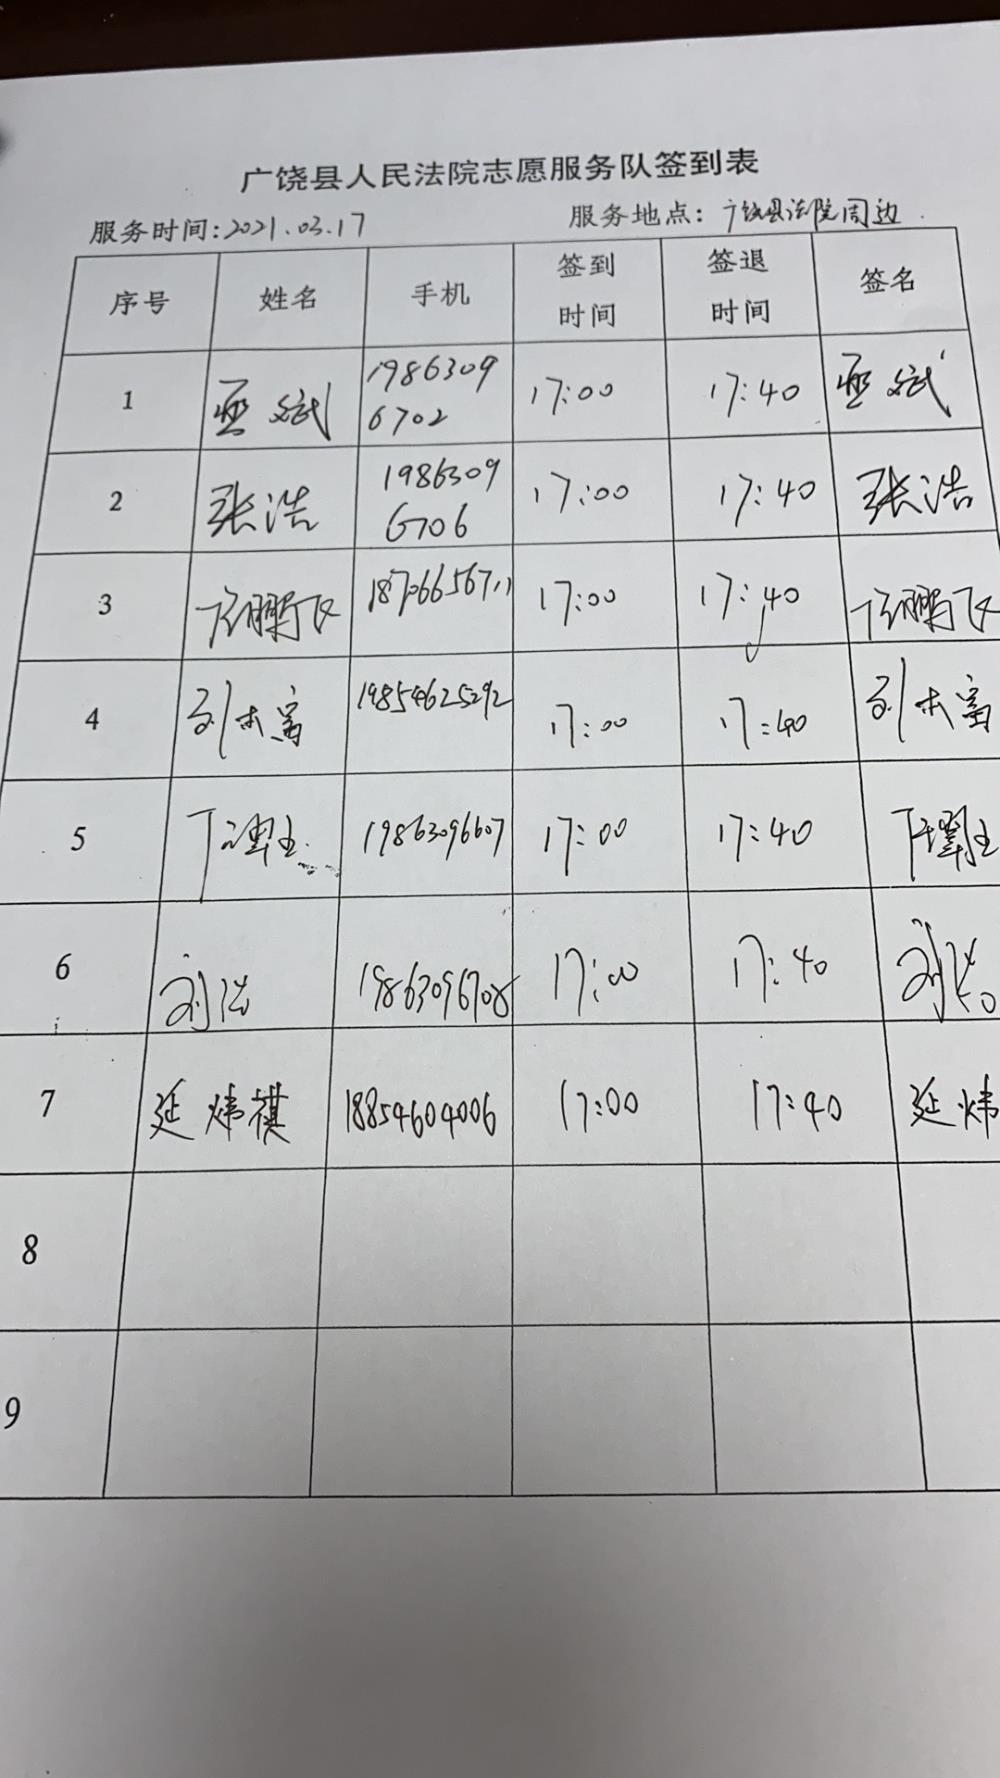 广饶县人民法院志愿服务队签到表
服务时间:2021.03.17 服务地点:广饶县法院周边.
序号 姓名 手机 签到时间 签退时间 签名
1 19863096702 17:00 17:40
2 张浩 19863096706 17:00 17:40 张浩
3 鹏飞 17:00 17:40 鹏飞
4 刘 19854625292 17:00 17:40 刘
5 丁 19863096607 17:00 17:40
6 刘 19863096708 17:00 17:40 刘
7 延炜祺 18854604006 17:00 17:40 延炜
8
9